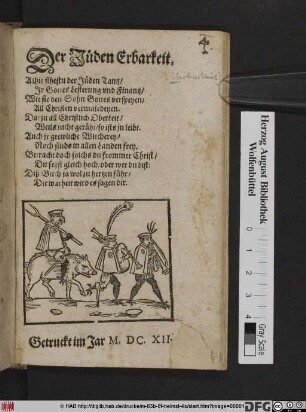 Der Jüden Erbarkeit.
Alhie sihestu der Jüden Tantz/
Jr Gottes lesterung vnd Finantz/
Wie sie den Sohn Gottes verspeyen/
All Christen vermaledeyen.
Dazu all Christlich Oberkeit/
Weils nicht gerüht/ so ists jn leidt/
Auch jr grewliche Wücherey/
Noch sinds in allen Landen frey.
Betracht doch solchs du frommer Christ/
Du seyst gleich hoch oder wer du bist.
Diß Buch ja wol zu hertzen führ/
Die warheit wird es sagen dir.
Getruckt im Jar M. DC. XII.
Herzog August Bibliothek
Wolfenbüttel
Gray Scale
© HAB http://diglib.hab.de/drucke/m-83b-6f-helmst-4s/start.htm?image=00001
DFG